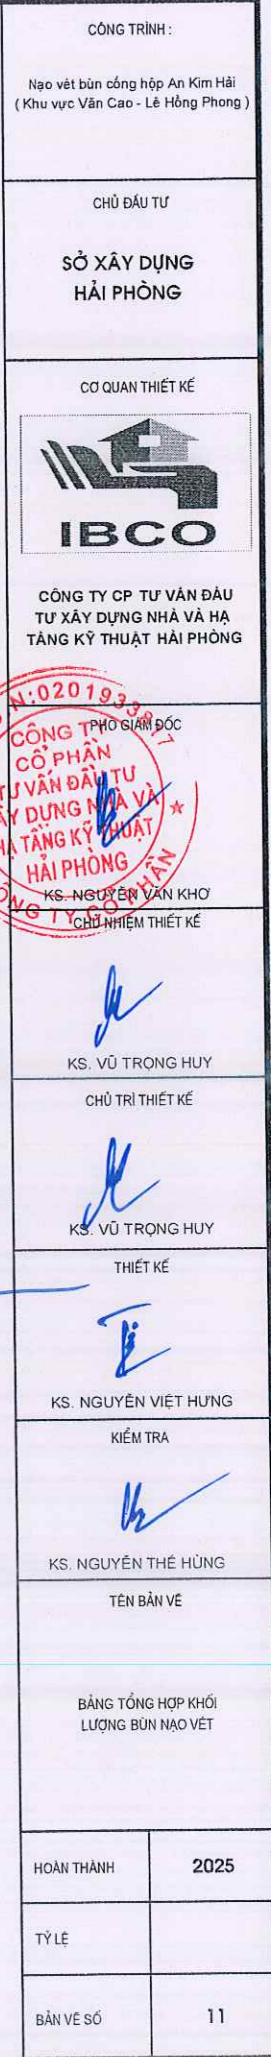 CÔNG TRÌNH :
Nạo vét bùn cống hộp An Kim Hải
( Khu vực Văn Cao - Lê Hồng Phong )
CHỦ ĐẦU TƯ
SỞ XÂY DỰNG
HẢI PHÒNG
CƠ QUAN THIẾT KẾ
IBCO
CÔNG TY CP TƯ VẤN ĐẦU
TƯ XÂY DỰNG NHÀ VÀ HẠ
TẦNG KỸ THUẬT HẢI PHÒNG
PHÓ GIÁM ĐỐC
CÔNG TY
CỔ PHẦN
TƯ VẤN ĐẦU TƯ
XÂY DỰNG NHÀ VÀ
HẠ TẦNG KỸ THUẬT
HẢI PHÒNG
KS. NGUYỄN VĂN KHƠ
CHỦ NHIỆM THIẾT KẾ
KS. VŨ TRỌNG HUY
CHỦ TRÌ THIẾT KẾ
KS. VŨ TRỌNG HUY
THIẾT KẾ
KS. NGUYỄN VIỆT HƯNG
KIỂM TRA
KS. NGUYỄN THẾ HÙNG
TÊN BẢN VẼ
BẢNG TỔNG HỢP KHỐI
LƯỢNG BÙN NẠO VÉT
HOÀN THÀNH 2025
TỶ LỆ
BẢN VẼ SỐ 11